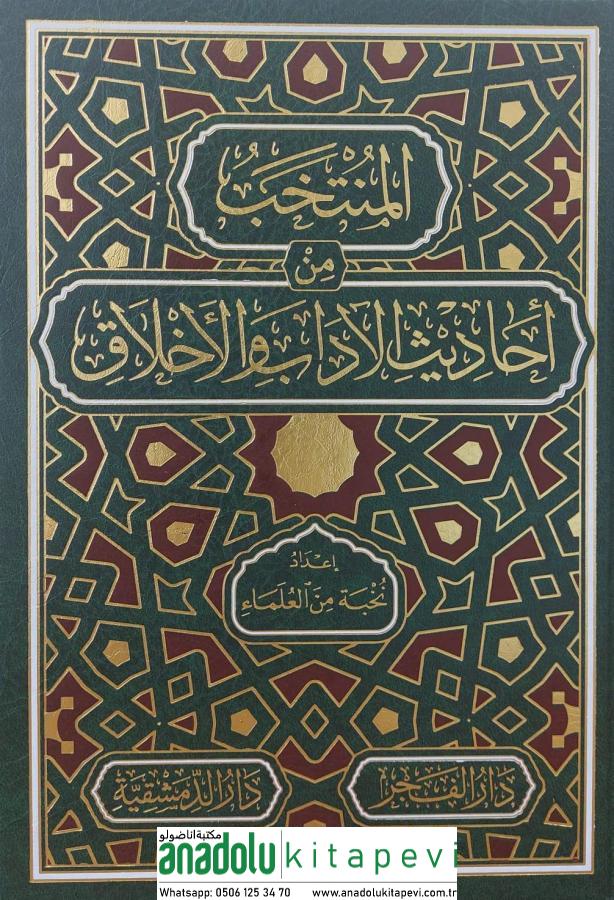 المُنْتَخَبُ
مِنْ
أَحَادِيثِ الآدَابِ وَالأَخْلَاقِ
إِعْدَادُ
نُخْبَة مِنَ العُلَمَاءِ
دَارُ الفَجْرِ
دَارُ الدِّمَشْقِيَّةِ
مكتبة اناضولو
anadolu kitapevi
Whatsapp: 0506 125 34 70 www.anadolukitapevi.com.tr